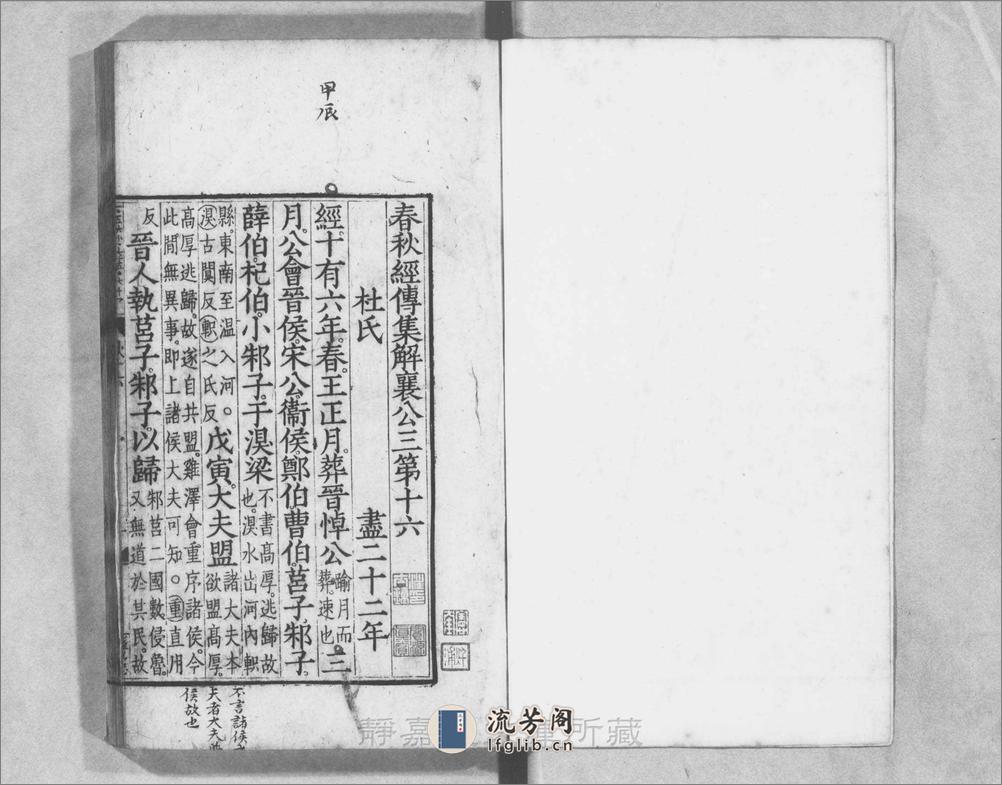 甲辰
春秋經傳集解襄公三第十六
杜氏 盡二十二年
經十有六年春王正月葬晉悼公踰月而葬速也三
月公會晉侯宋公衞侯鄭伯曹伯莒子邾子
薛伯杞伯小邾子于湨梁不書高厚逃歸故也湨水出河內軹
縣東南至温入河。湨古闃反軹之氏反戊寅大夫盟諸大夫本欲盟高厚
高厚逃歸故遂自共盟雞澤會重序諸侯今
此間無異事即上諸侯大夫可知。重直用
反晉人執莒子邾子以歸邾莒二國數侵魯又無道於其民故
不言諸侯
夫者大夫
侯故也
靜嘉 所藏
流芳阁
lfglib.cn